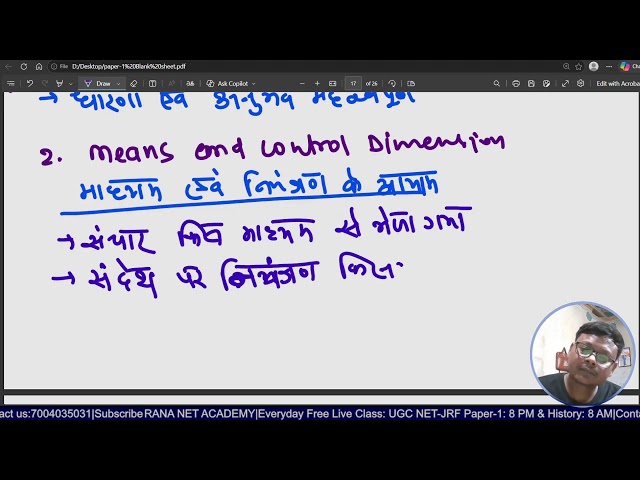 D:/Desktop/paper-1%20Blank%20sheet.pdf
Draw
Ask Copilot
17 of 26
Edit with Acrobat
→ धारणा एवं अनुभव महत्वपूर्ण
2. Means and control Dimension
माध्यम एवं नियंत्रण के आयाम
→ संचार किस माध्यम से भेजा गया
→ संदेश पर नियंत्रण किस
act us:7004035031|Subscribe RANA NET ACADEMY|Everyday Free Live Class: UGC NET-JRF Paper-1: 8 PM & History: 8 AM|Conta